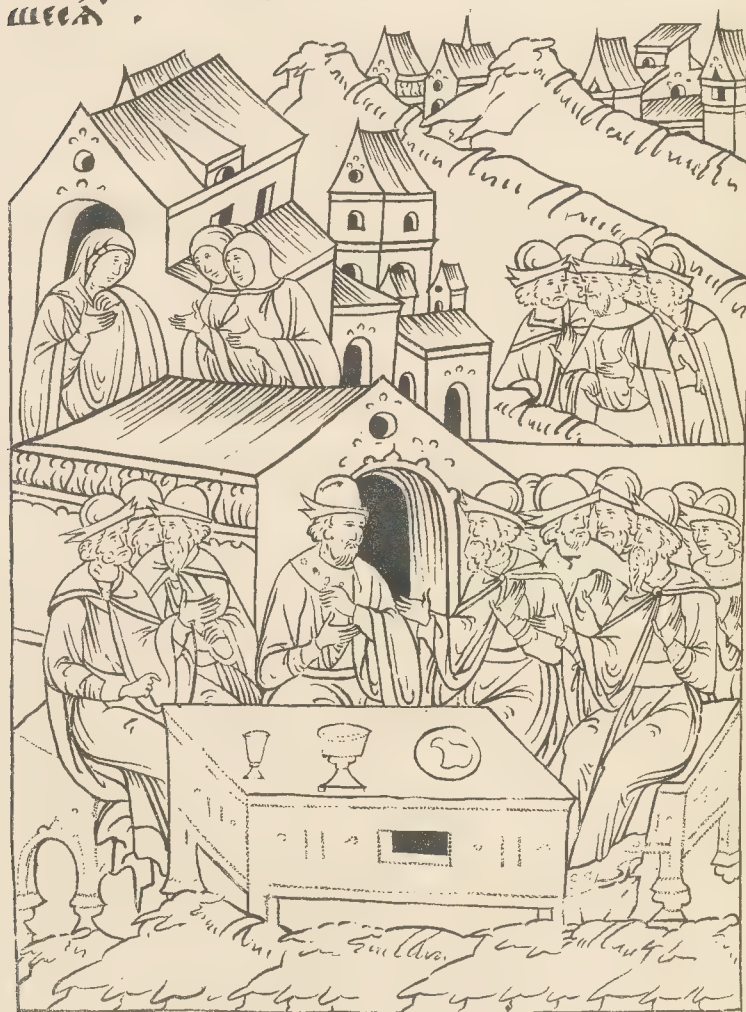 шесѧ .